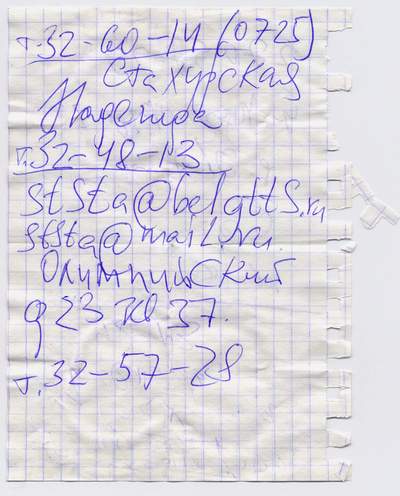 т.32-60-14 (0725)
Стахурская
Надежда
т.32-48-13
StSta@belgtts.ru
ststa@mail.ru.
Олимпийский
д 23 кв 37.
т.32-57-28